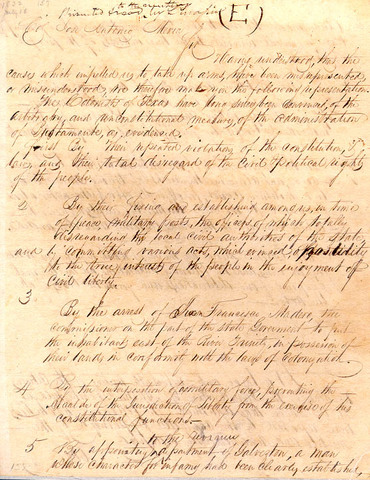 (E)
Col. Jose Antonio Mexia
Sir
Having understood, that the
causes which impelled us to take up arms, have been misrepresented,
or misunderstood, we therefore make you the following representation.
The Colonists of Texas have long since been convinced, of the
arbitrary, and unconstitutional measures, of the administration
of Bustamente, as evinced.
1 First By their repeated violations of the constitution,
and their total disregard of the Civil & Political rights
of the people.
2 By their fixing and establishing among us, in time
of peace, military posts, the officers of which totally
disregarding the local civil authorities of the State
and by committing various acts, which evinced, opposition
to the true interest of the people in the enjoyment of
Civil liberty.
3
By the arrest of Juan Francisco Madero, the
commissioner on the part of the State Government to put
the inhabitants east of the River Trinity, in possession of
their lands in conformity with the laws of Colonization.
4 By the interposition of military force, preventing the
Alcalde of the Jurisdiction of Liberty from the exercise of his
constitutional functions.
5 By appointing to the revenue department of Galveston, a man
whose character for infamy had been clearly established,